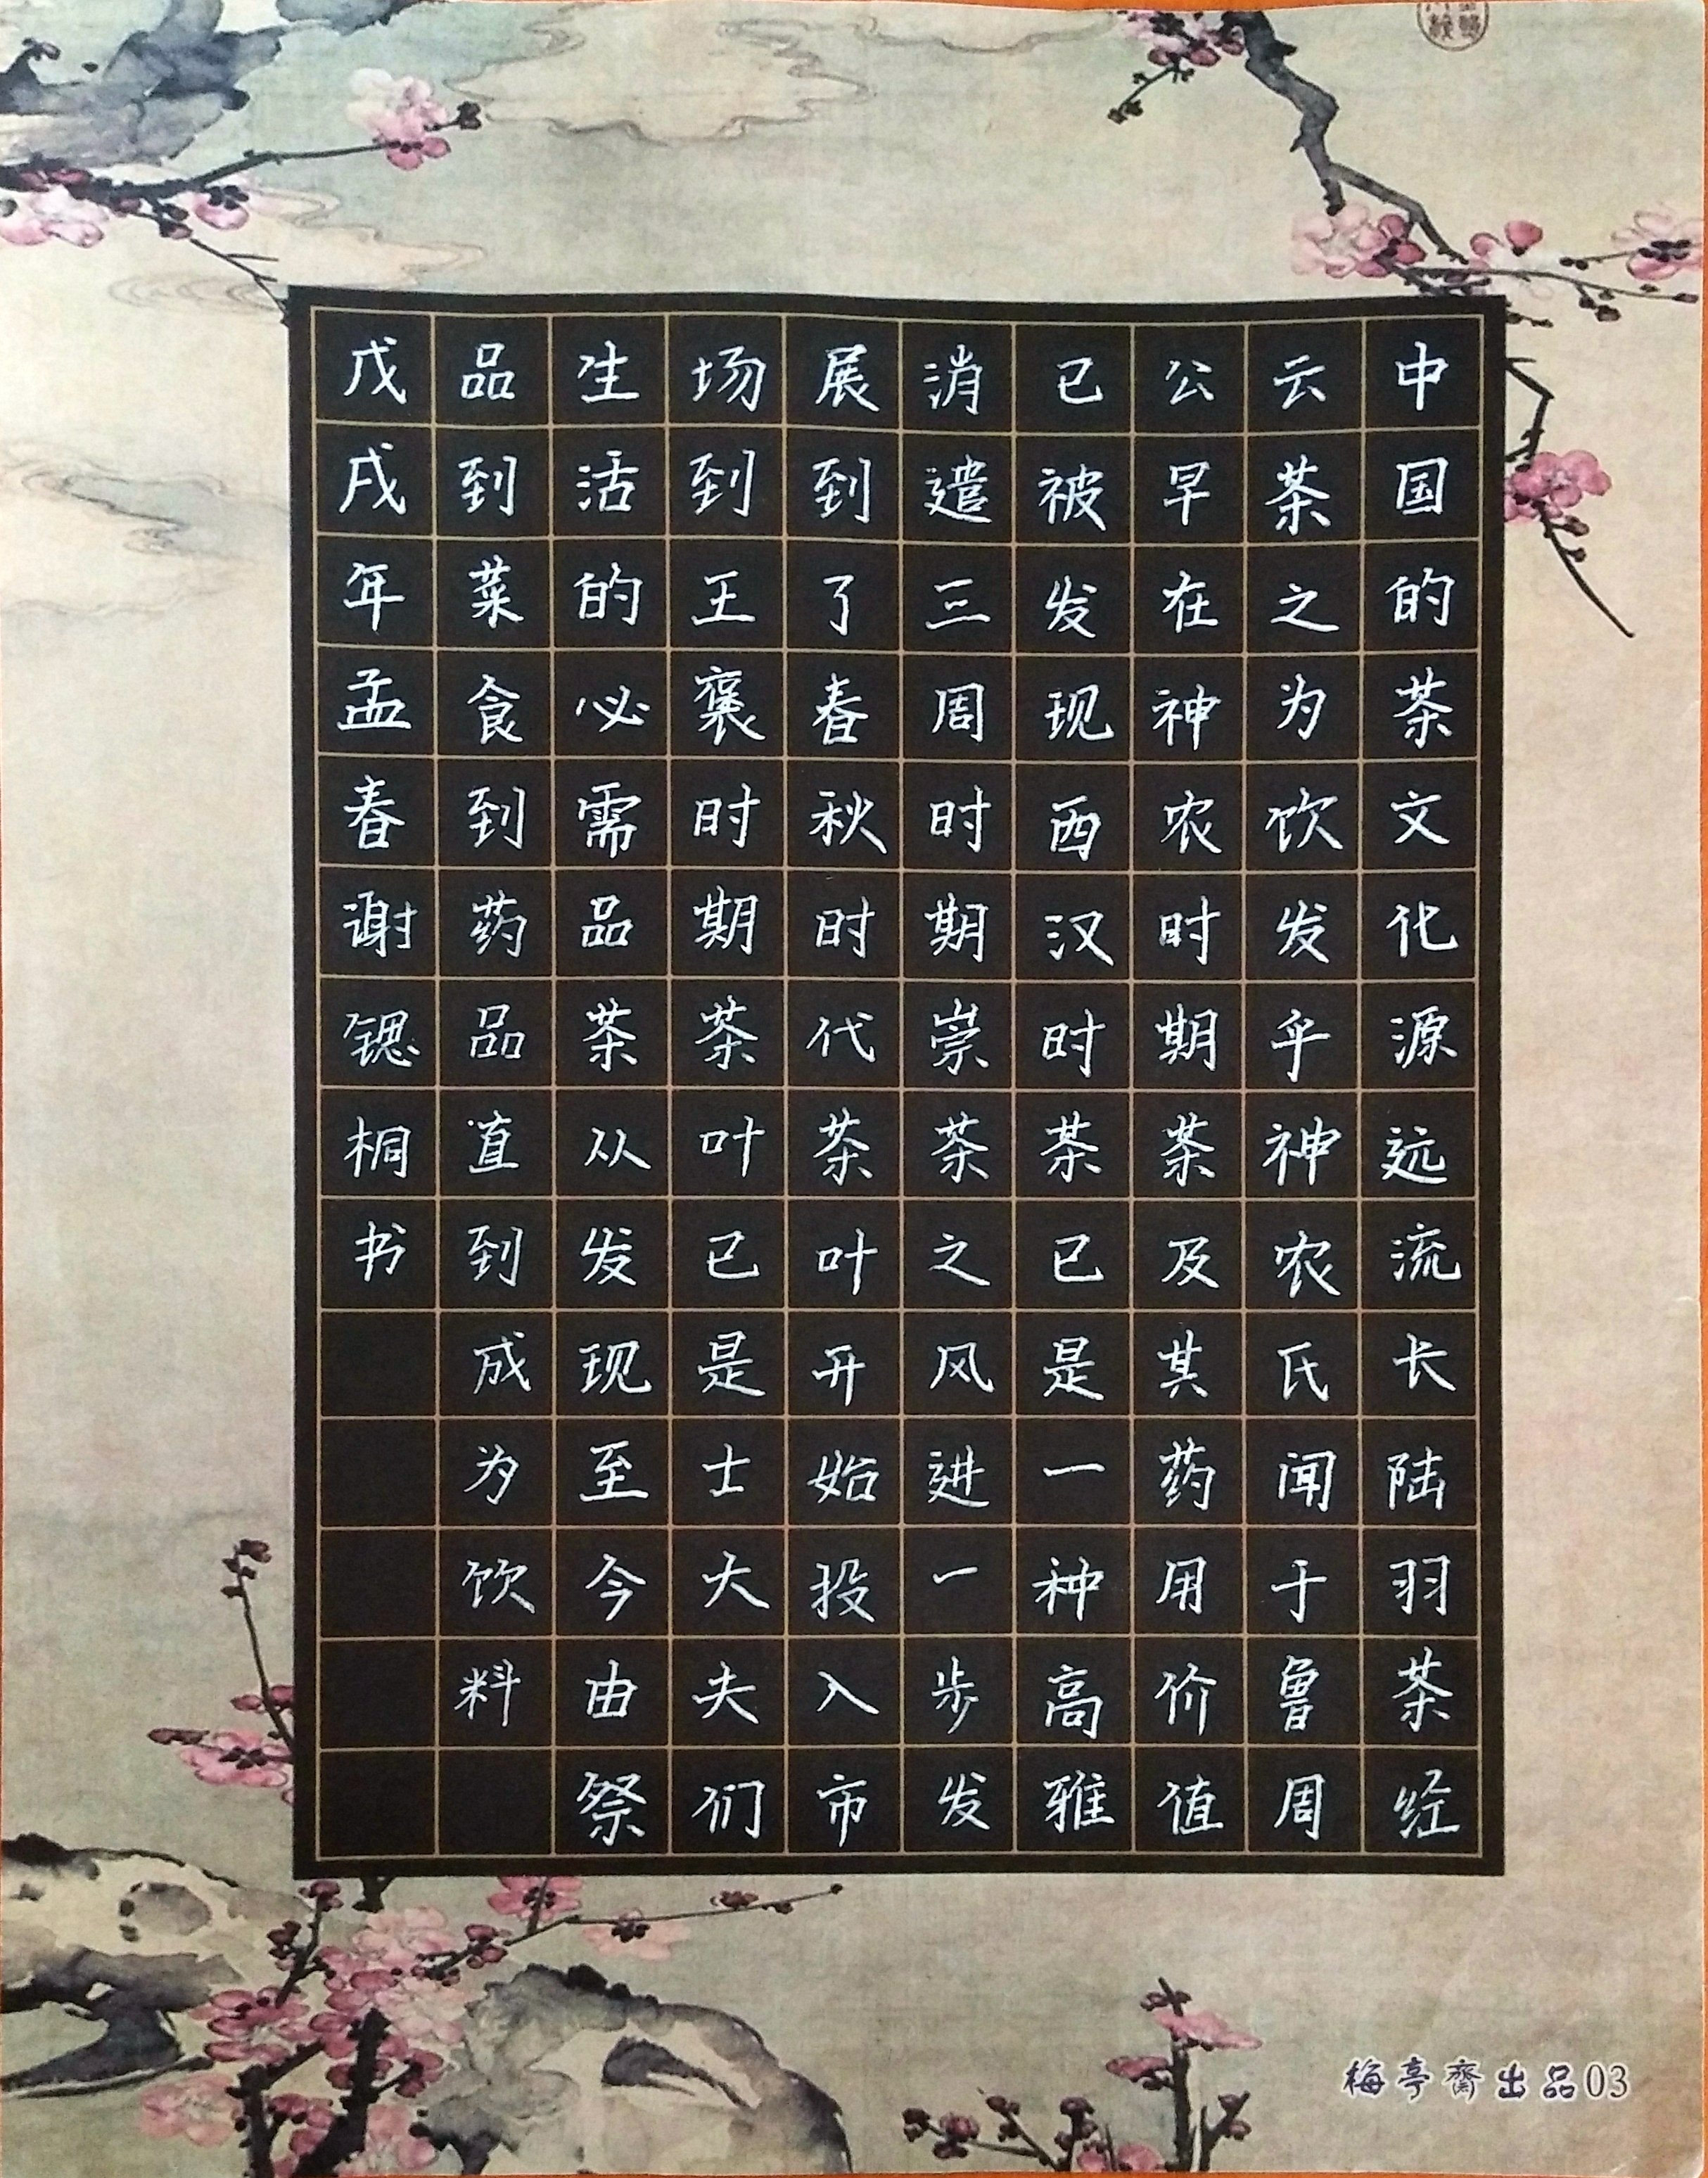 中国的茶文化源远流长陆羽茶经
云茶之为饮发乎神农氏闻于鲁周
公早在神农时期茶及其药用价值
已被发现西汉时茶已是一种高雅
消遣三周时期崇茶之风进一步发
展到了春秋时代茶叶开始投入市
场到王褒时期茶叶已是士大夫们
生活的必需品茶从发现至今由祭
品到菜食到药品直到成为饮料
戊戌年孟春谢锶桐书
梅亭齋出品03